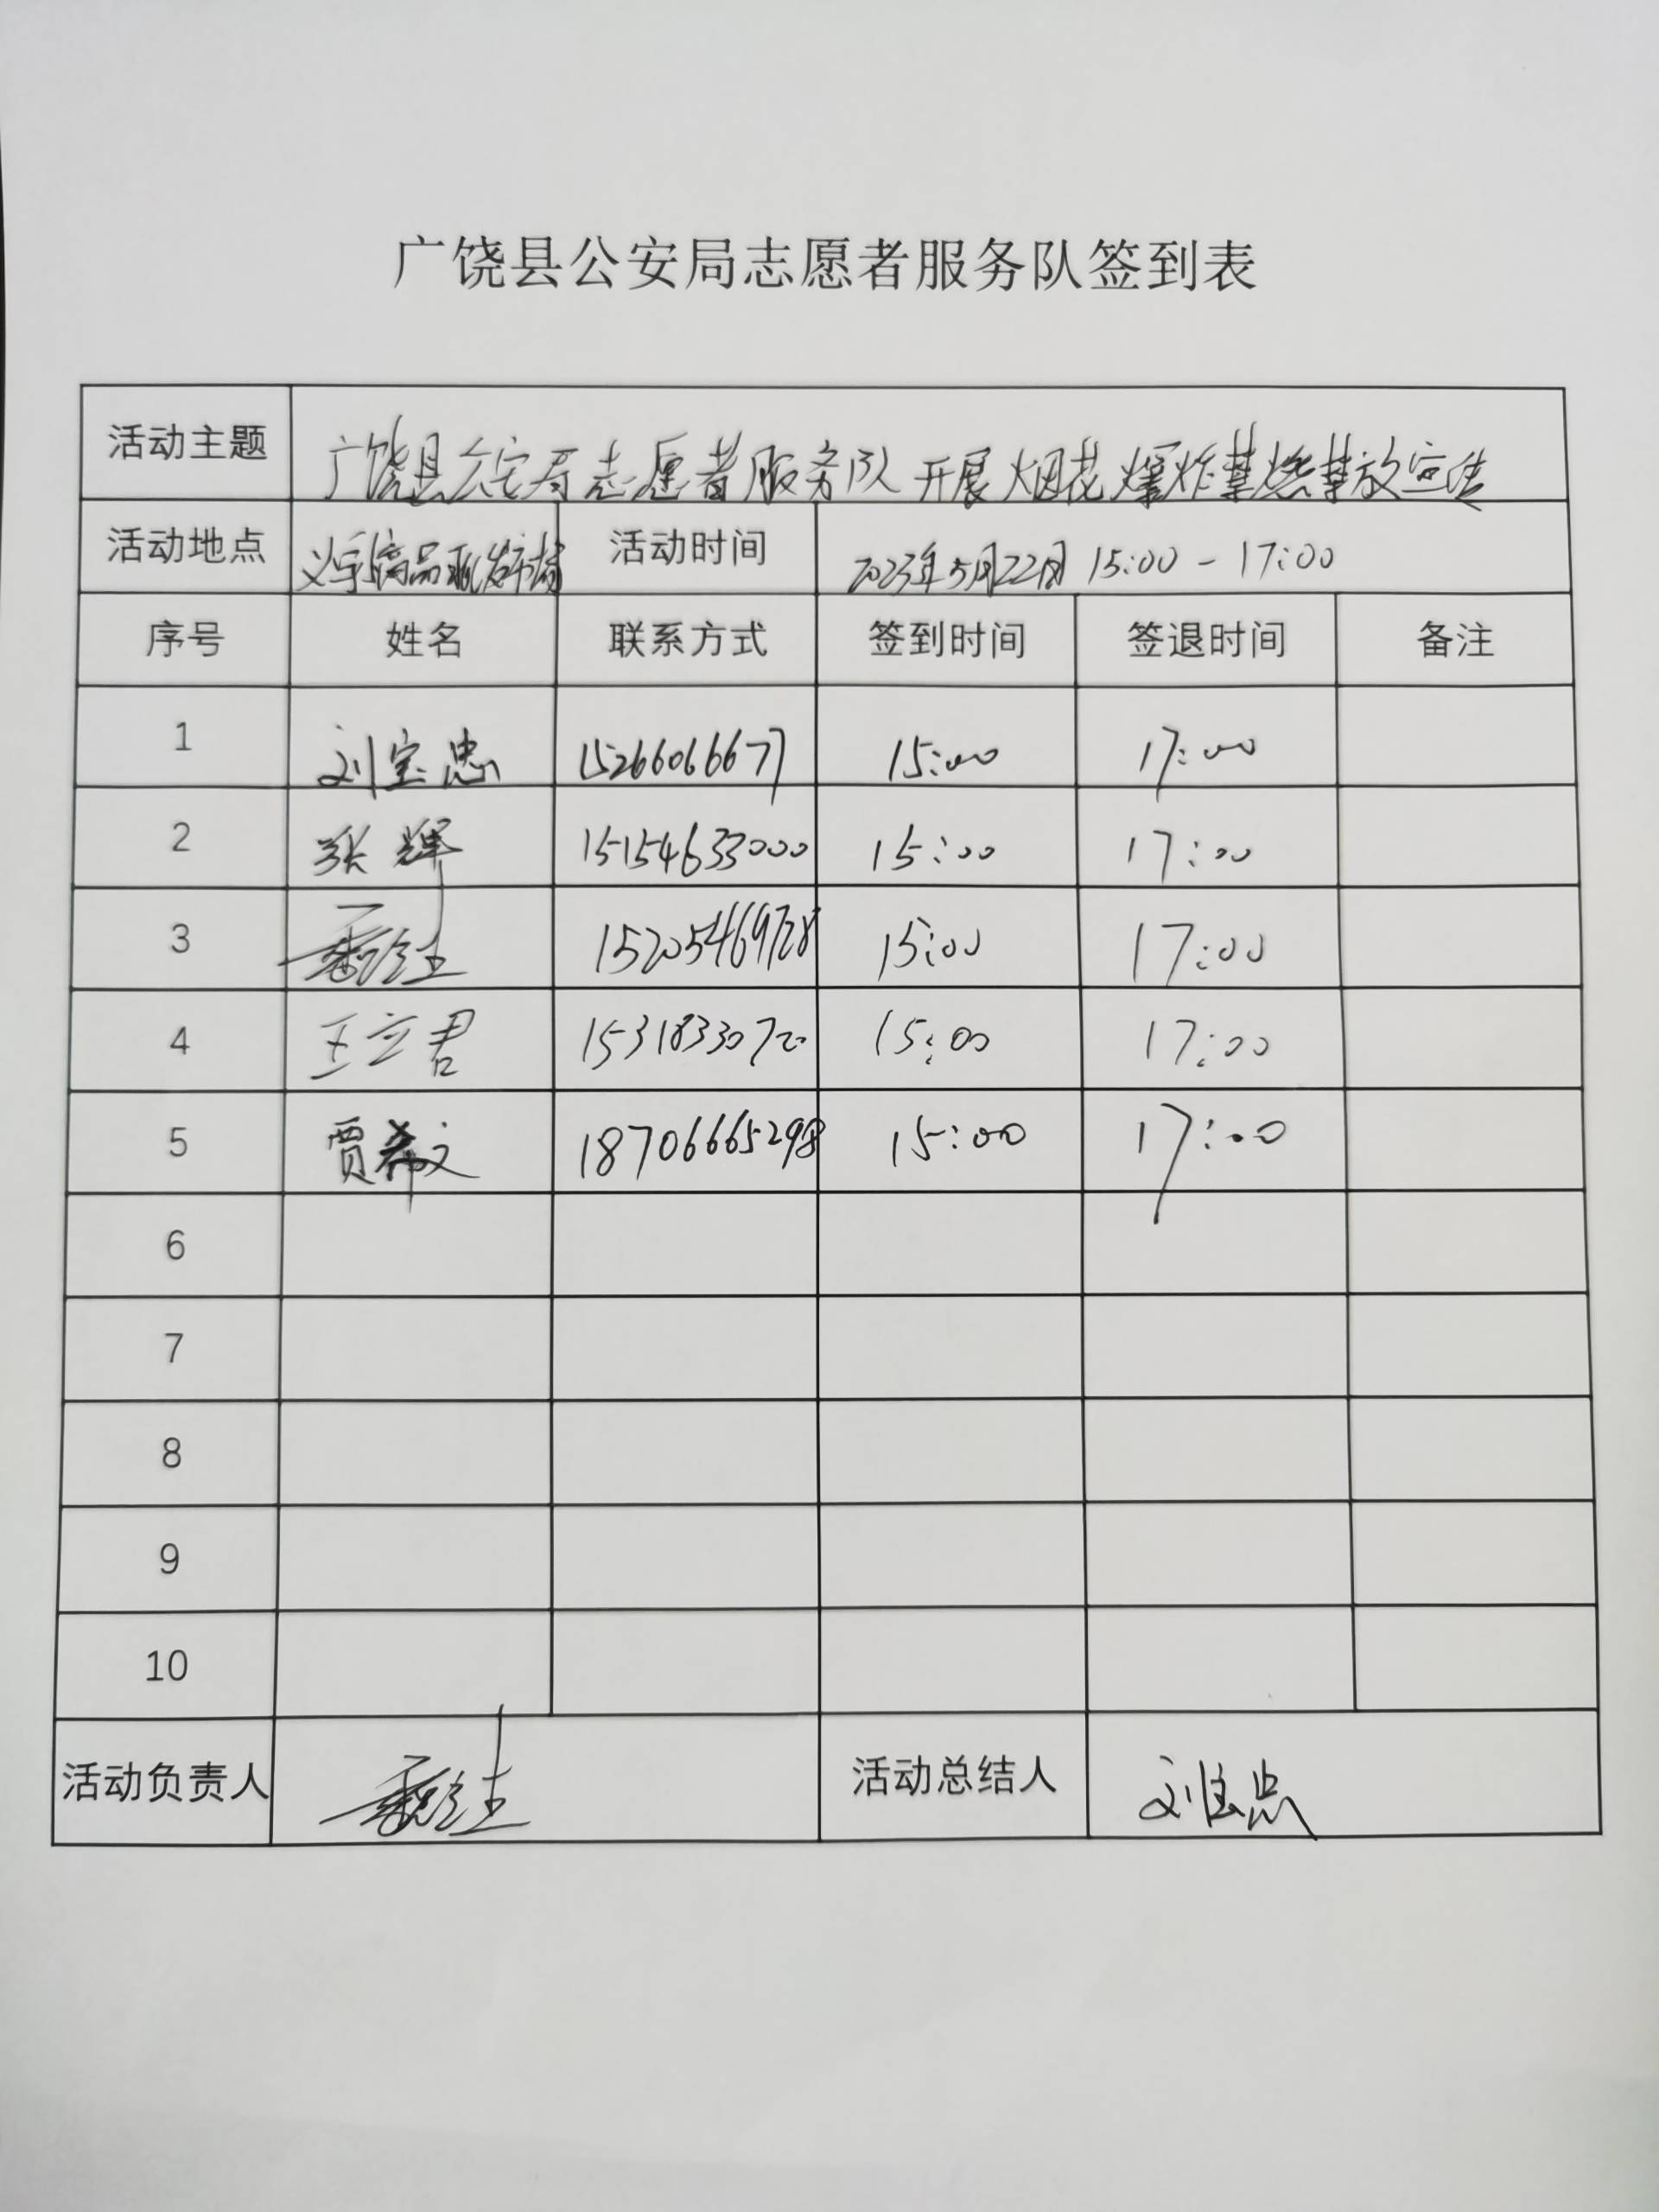 广饶县公安局志愿者服务队签到表
活动主题 广饶县公安局志愿者服务队开展烟花爆炸禁燃禁放宣传
活动地点 义乌小商品批发市场 活动时间 2023年5月22日 15:00-17:00
序号 姓名 联系方式 签到时间 签退时间 备注
1 刘宝忠 15266066677 15:00 17:00
2 张辉 15154633000 15:00 17:00
3 15205469728 15:00 17:00
4 王立君 15318330720 15:00 17:00
5 贾希文 18706665298 15:00 17:00
6
7
8
9
10
活动负责人 活动总结人 刘宝忠